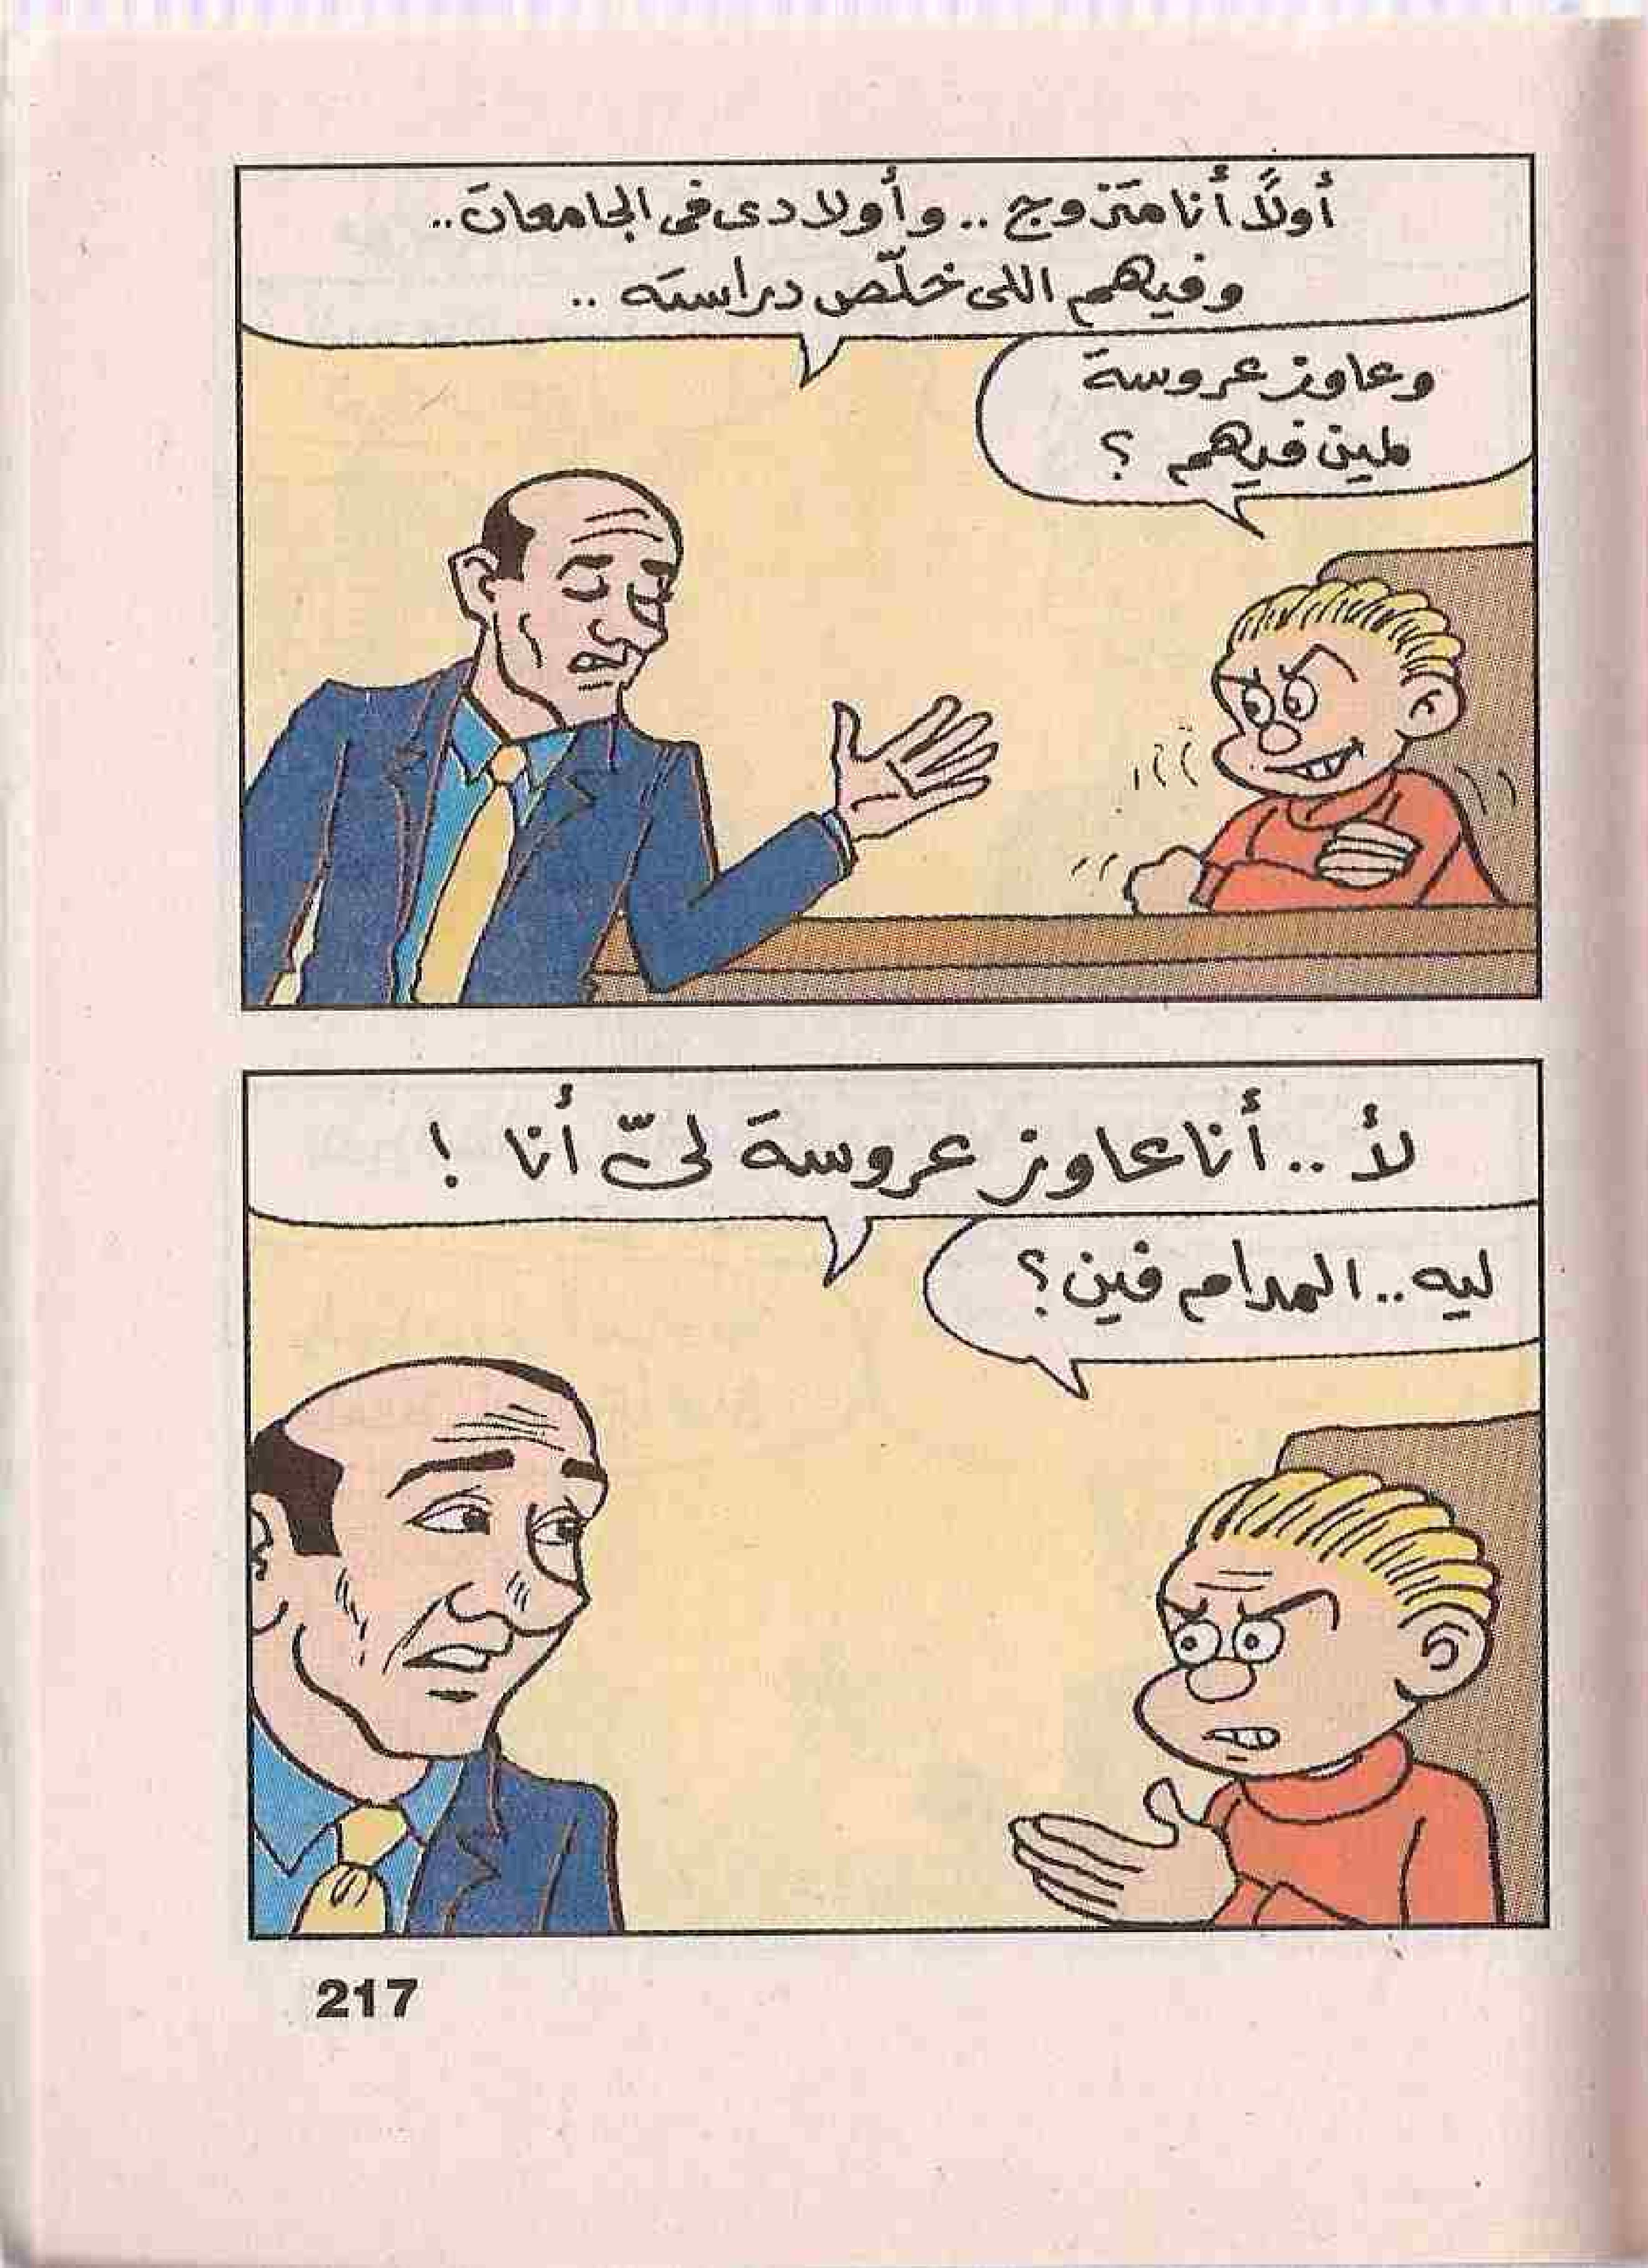 أولاً أنا متزوج .. وأولادى فى الجامعات ..
وفيهم اللى خلّص دراسته ..
وعاوز عروسة
لمين فيهم ؟
لأ .. أنا عاوز عروسة لىّ أنا !
ليه .. المدام فين ؟
217